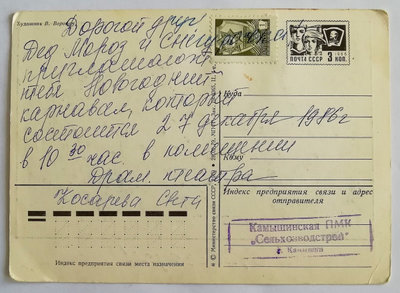 Художник В.
Дорогой друг
Дед Мороз и Снегурочка
приглашают
тебя Новогодний
карнавал, который
состоится 27 декабря 1986г
в 10 30 час. в помещении
Драм. театра
Косарева Свете
ПОЧТА СССР 3 КОП.
Куда
Кому
Индекс предприятия связи и адрес
отправителя
Камышинская ПМК
"Сельхозводстрой"
г. Камышин
Индекс предприятия связи места назначения
© Министерство связи СССР